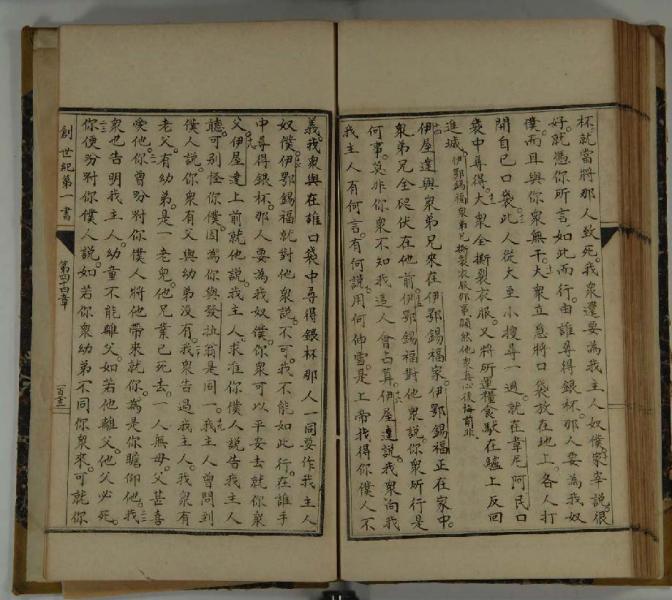 杯。就當將那人致死。我衆還要為我主人奴僕。家宰說。很
好。就憑你所言。如此而行。由誰尋得銀杯。那人要為我奴
僕。而且與你衆無干。大衆立急將口袋放在地上。各人打
開自己口袋。此人從大至小搜尋一過。就在韋尼阿民口
袋中尋得。大衆全撕裂衣服。又將所運糧食馱在驢上反回
進城。伊鄂錫福衆弟兄撕裂衣服顯然他衆真心後悔前非
伊屋達與衆弟兄來在伊鄂錫福家。伊鄂錫福正在家中。
衆弟兄全磕伏在他前。伊鄂錫福對他衆說。你衆所行是
何事。莫非你衆不知我這人會占算。伊屋達說。我衆向我
我主人有何言。有何說。用何伸雪。是上帝找得你僕人不
義。我衆與在誰口袋中尋得銀杯那人一同要作我主人
奴僕。伊鄂錫福就對他衆說。不可。我不能如此行。在誰手
中尋得銀杯。那人要為我奴僕。你衆可以平安去就你衆
父。伊屋達上前就他說。我主人。求准你僕人說告我主人
聽。可別怪你僕。因為你與發拉翁是同一。我主人曾問到
僕人說。你衆有父與幼弟沒有。我衆告過我主人。我衆有
老父。有幼弟。是一老兒。他兄業已死去。一人無母。父甚喜
愛他。你曾吩咐你僕人將他帶來就你。為是你瞻仰他。我
衆也告明我主人。幼童不能離父。如若他離父。他父必死。
你便吩咐你僕人說。如若你衆幼弟不同你衆來。可就你
創世紀第一書
第四十四章